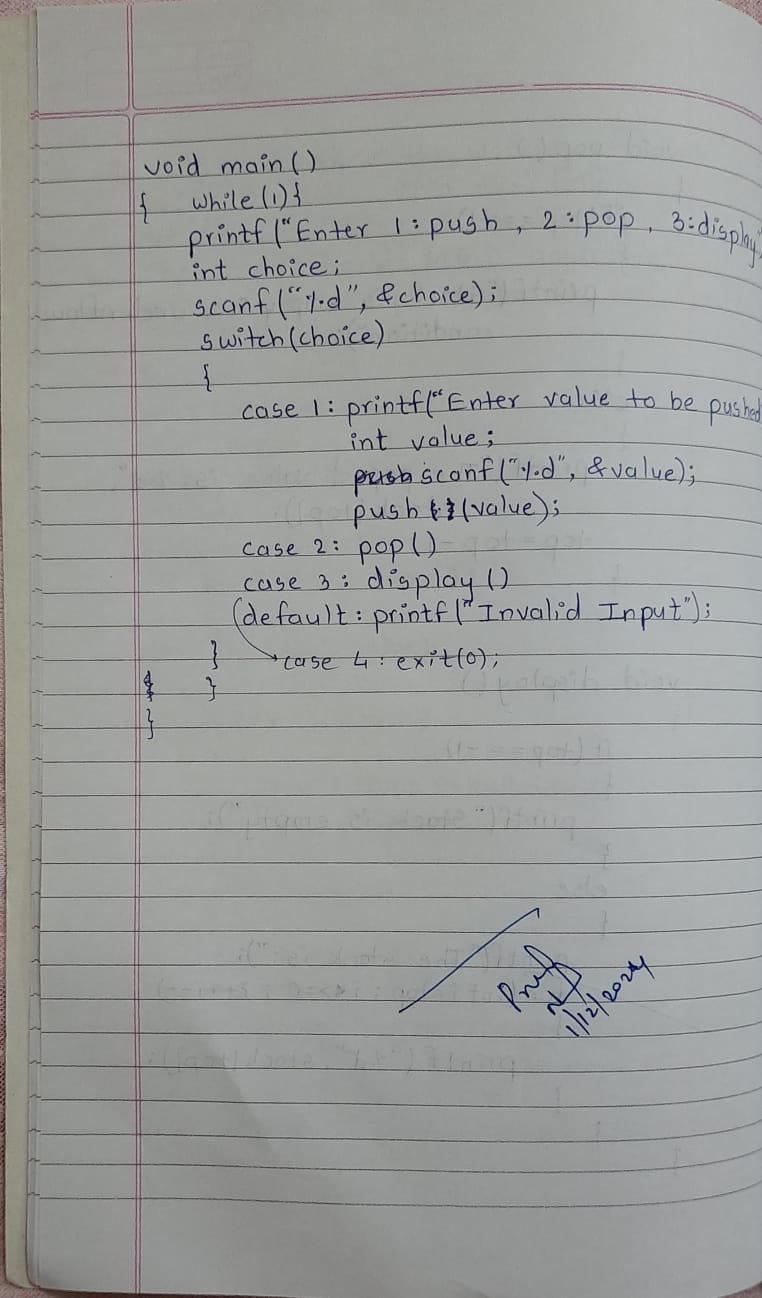 void main()
{ while(1){
printf("Enter 1:push, 2:pop, 3:display"
int choice;
scanf("%d", &choice);
switch(choice)
{
case 1: printf("Enter value to be pushed
int value;
scanf("%d", &value);
push (value);
case 2: pop()
case 3: display()
default: printf("Invalid Input");
} case 4: exit(0);
}
}
1/12/2024